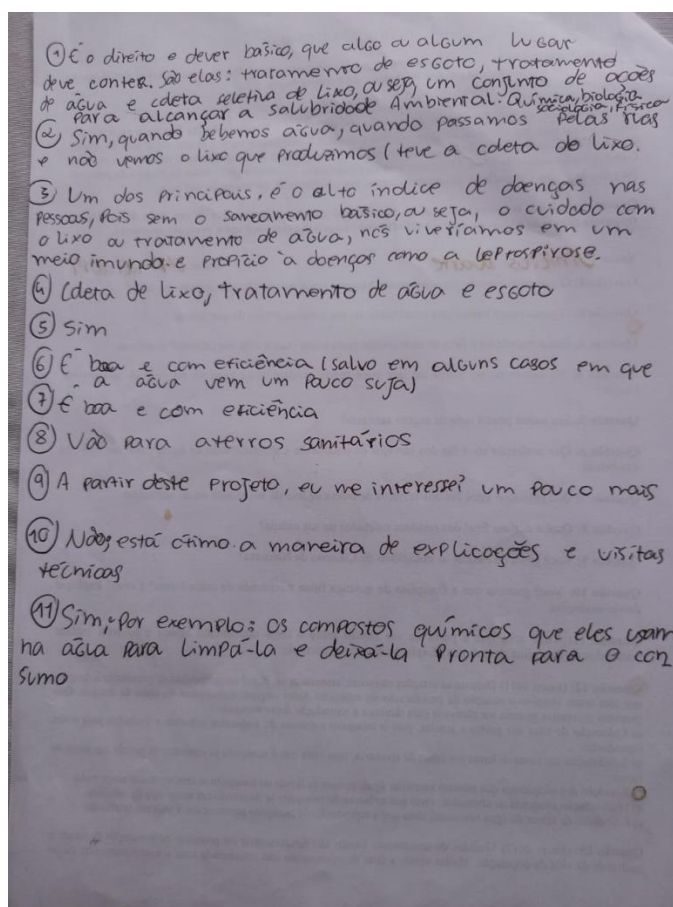 ① É o direito e dever básico, que algo ou algum lugar
deve conter. São elas: tratamento de esgoto, tratamento
de água e coleta seletiva de lixo, ou seja, um conjunto de ações
para alcançar a salubridade Ambiental: Química, biologia,
sociologia, física
② Sim, quando bebemos água, quando passamos pelas ruas
e não vemos o lixo que produzimos (teve a coleta do lixo.
③ Um dos principais, é o alto índice de doenças nas
pessoas, pois sem o saneamento básico, ou seja, o cuidado com
o lixo ou tratamento de água, nós viveríamos em um
meio imundo e propício à doenças como a leprospirose.
④ Coleta de lixo, tratamento de água e esgoto
⑤ Sim
⑥ É boa e com eficiência (salvo em alguns casos em que
a água vem um pouco suja)
⑦ É boa e com eficiência
⑧ Vão para aterros sanitários
⑨ A partir deste projeto, eu me interessei um pouco mais
⑩ Não, está ótimo a maneira de explicações e visitas
técnicas
⑪ Sim, por exemplo: os compostos químicos que eles usam
na água para limpá-la e deixá-la pronta para o con
sumo